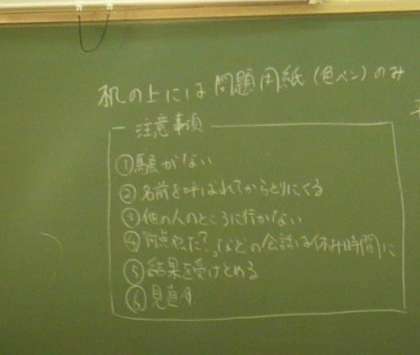 机の上には問題用紙(色ペン)のみ
注意事項
①騒がない
②名前を呼ばれてからとりにくる
③他の人のところに行かない
④何点やった?などの会話は休み時間に
⑤結果を受けとめる
⑥見直し